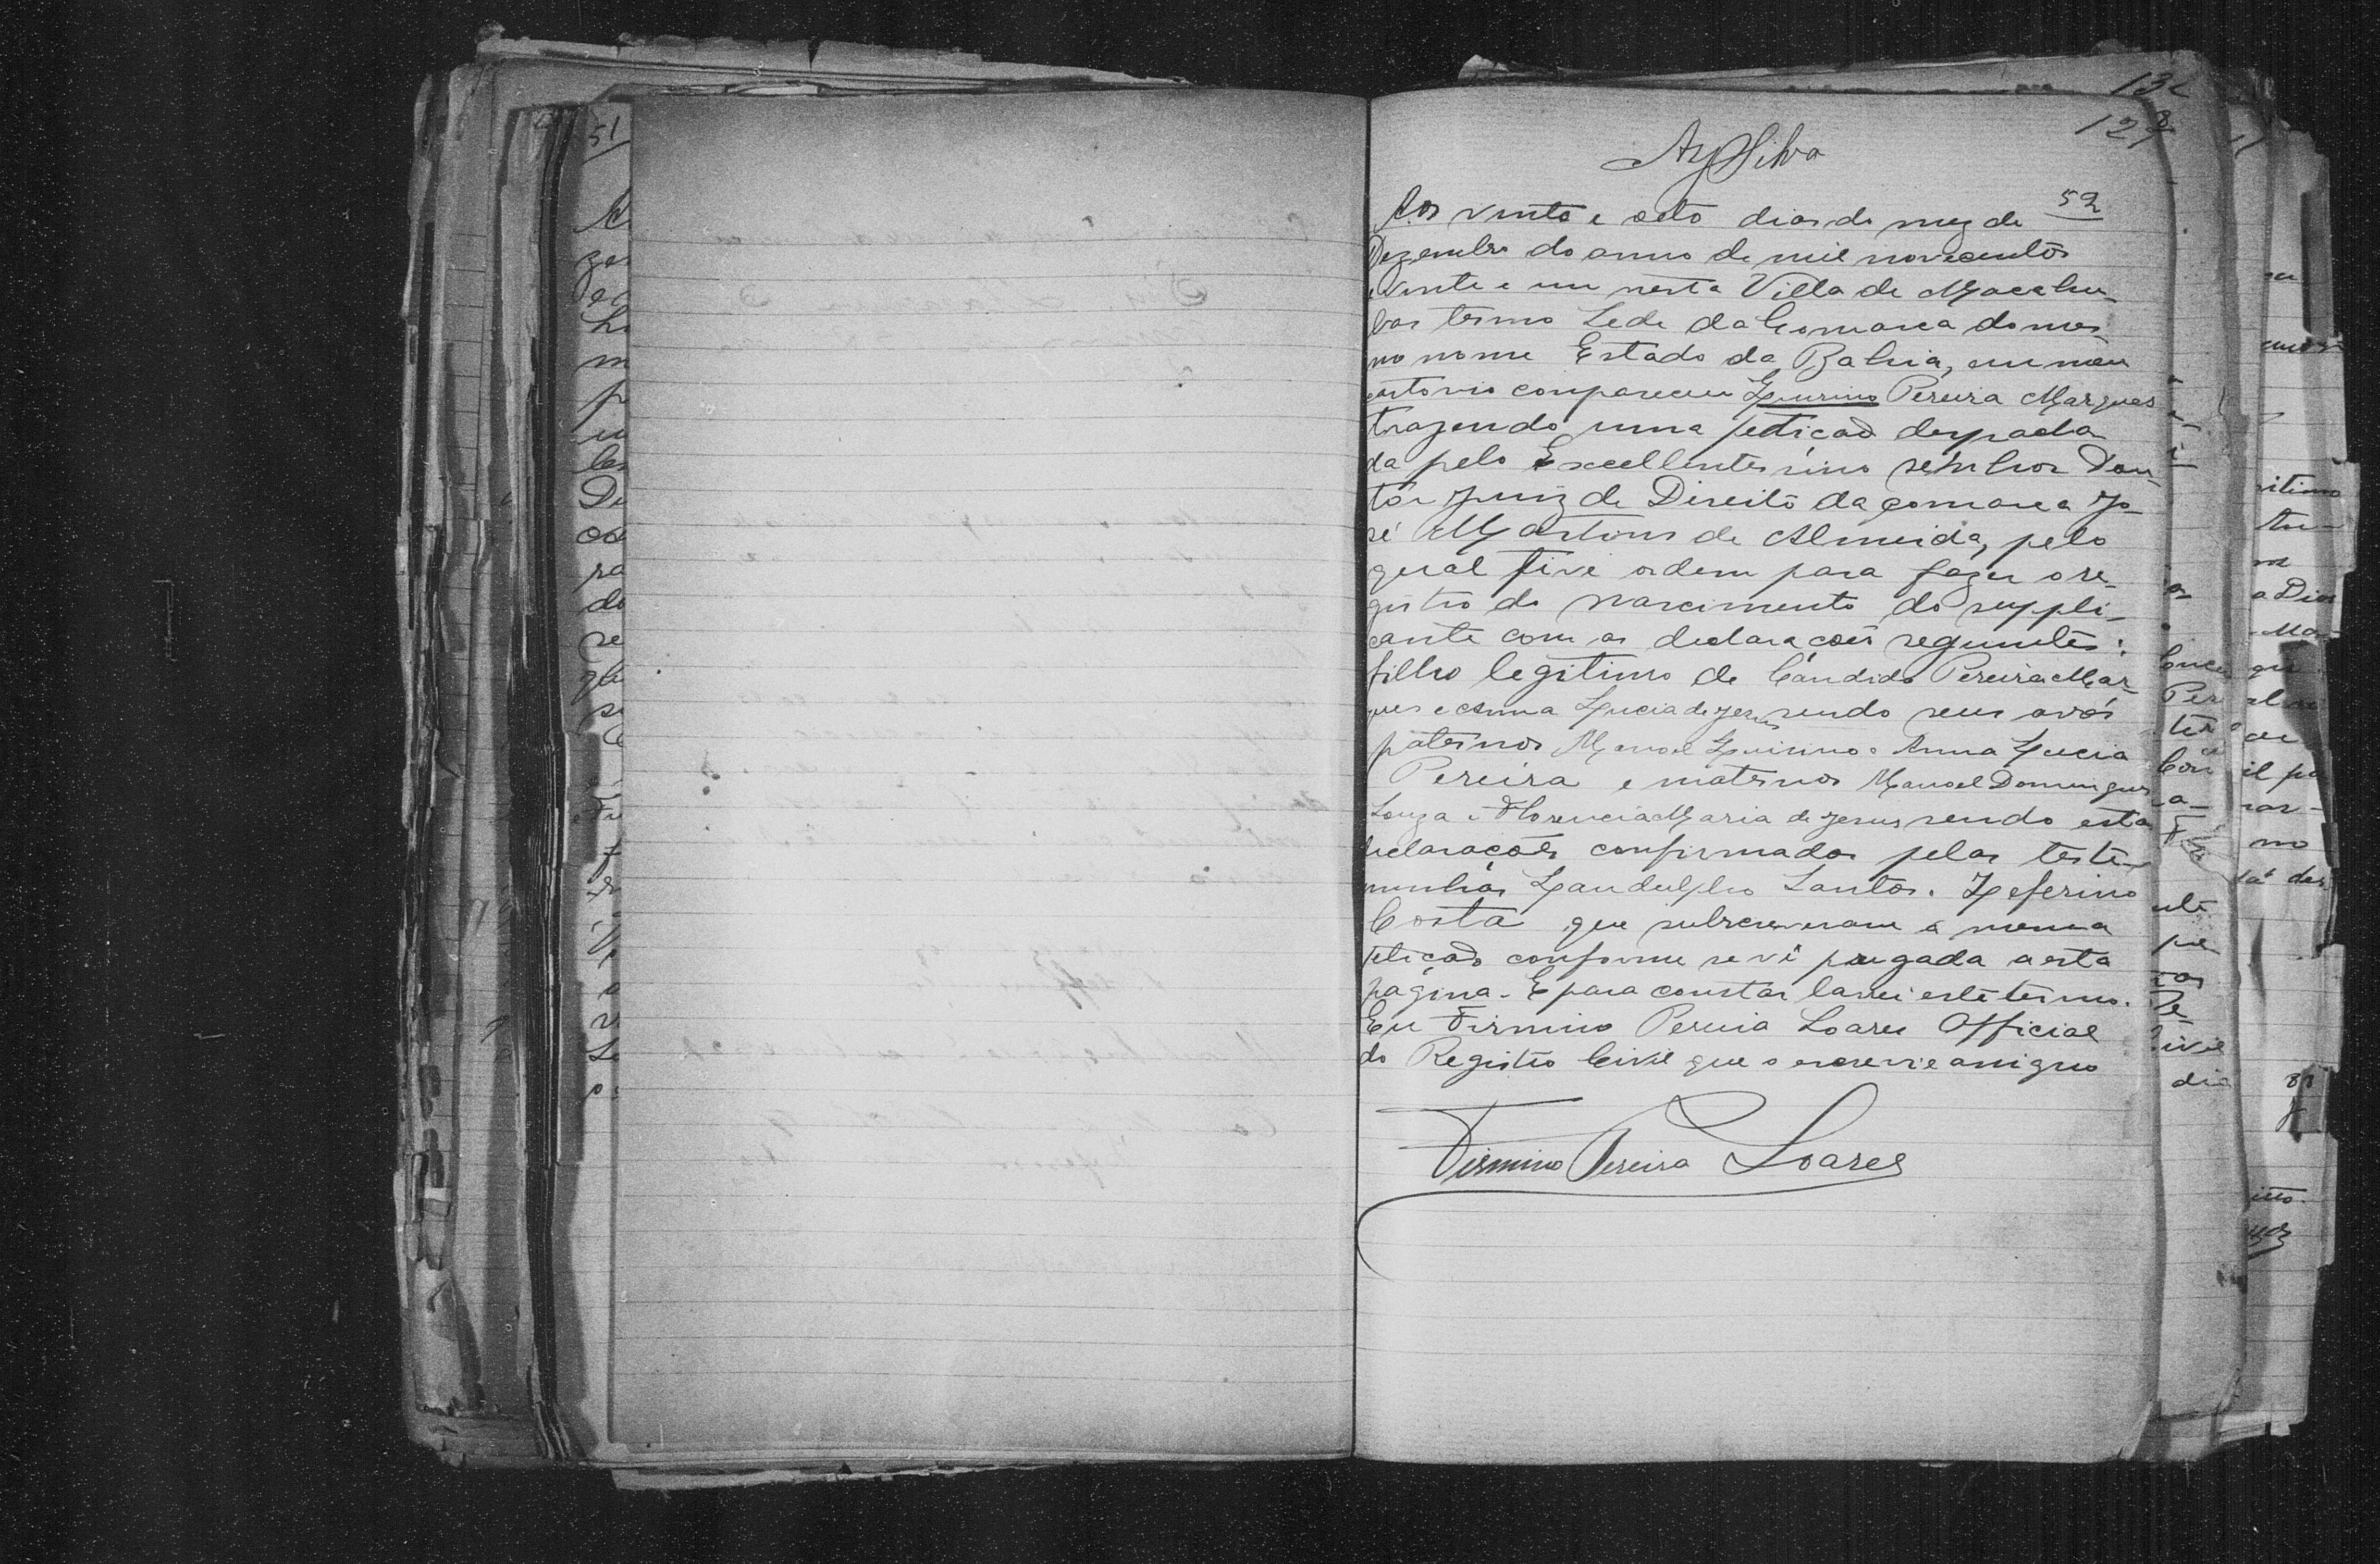 51
128
AzSilva
52
Aos vinte e oito dias do mez de
Dezembro do anno de mil novecentos
e vinte e um nesta Villa de Macahu-
bas termo Sede da Comarca do mes
mo nome Estado da Bahia, em meu
cartorio compareceu Pereira Marques
trazendo uma petição despacha
da pelo Excellentessimo senhor Dou-
tor Juiz de Direito da comarca Jo-
sé Martins de Almeida, pelo
qual tive ordem para fazer o re-
gistro de nascimento do suppli-
cante com as declarações seguintes:
filho legitimo de Cândido Pereira Mar-
ques e Anna Lucia de Jesus sendo seus avós
paternos Manoel e Anna Lucia
Pereira e maternos Manoel Domingues
Souza e Florencia Maria de Jesus sendo esta
declarações confirmadas pelas teste-
munhas Landulpho Santos. Zeferino
Costa que subscreveram a mesma
petição conforme se vê pregada a esta
página. E para constar lavrei este termo.
Eu Firmino Pereira Soares Official
do Registro Civil que o escrevi e assigno
Firmino Pereira Soares